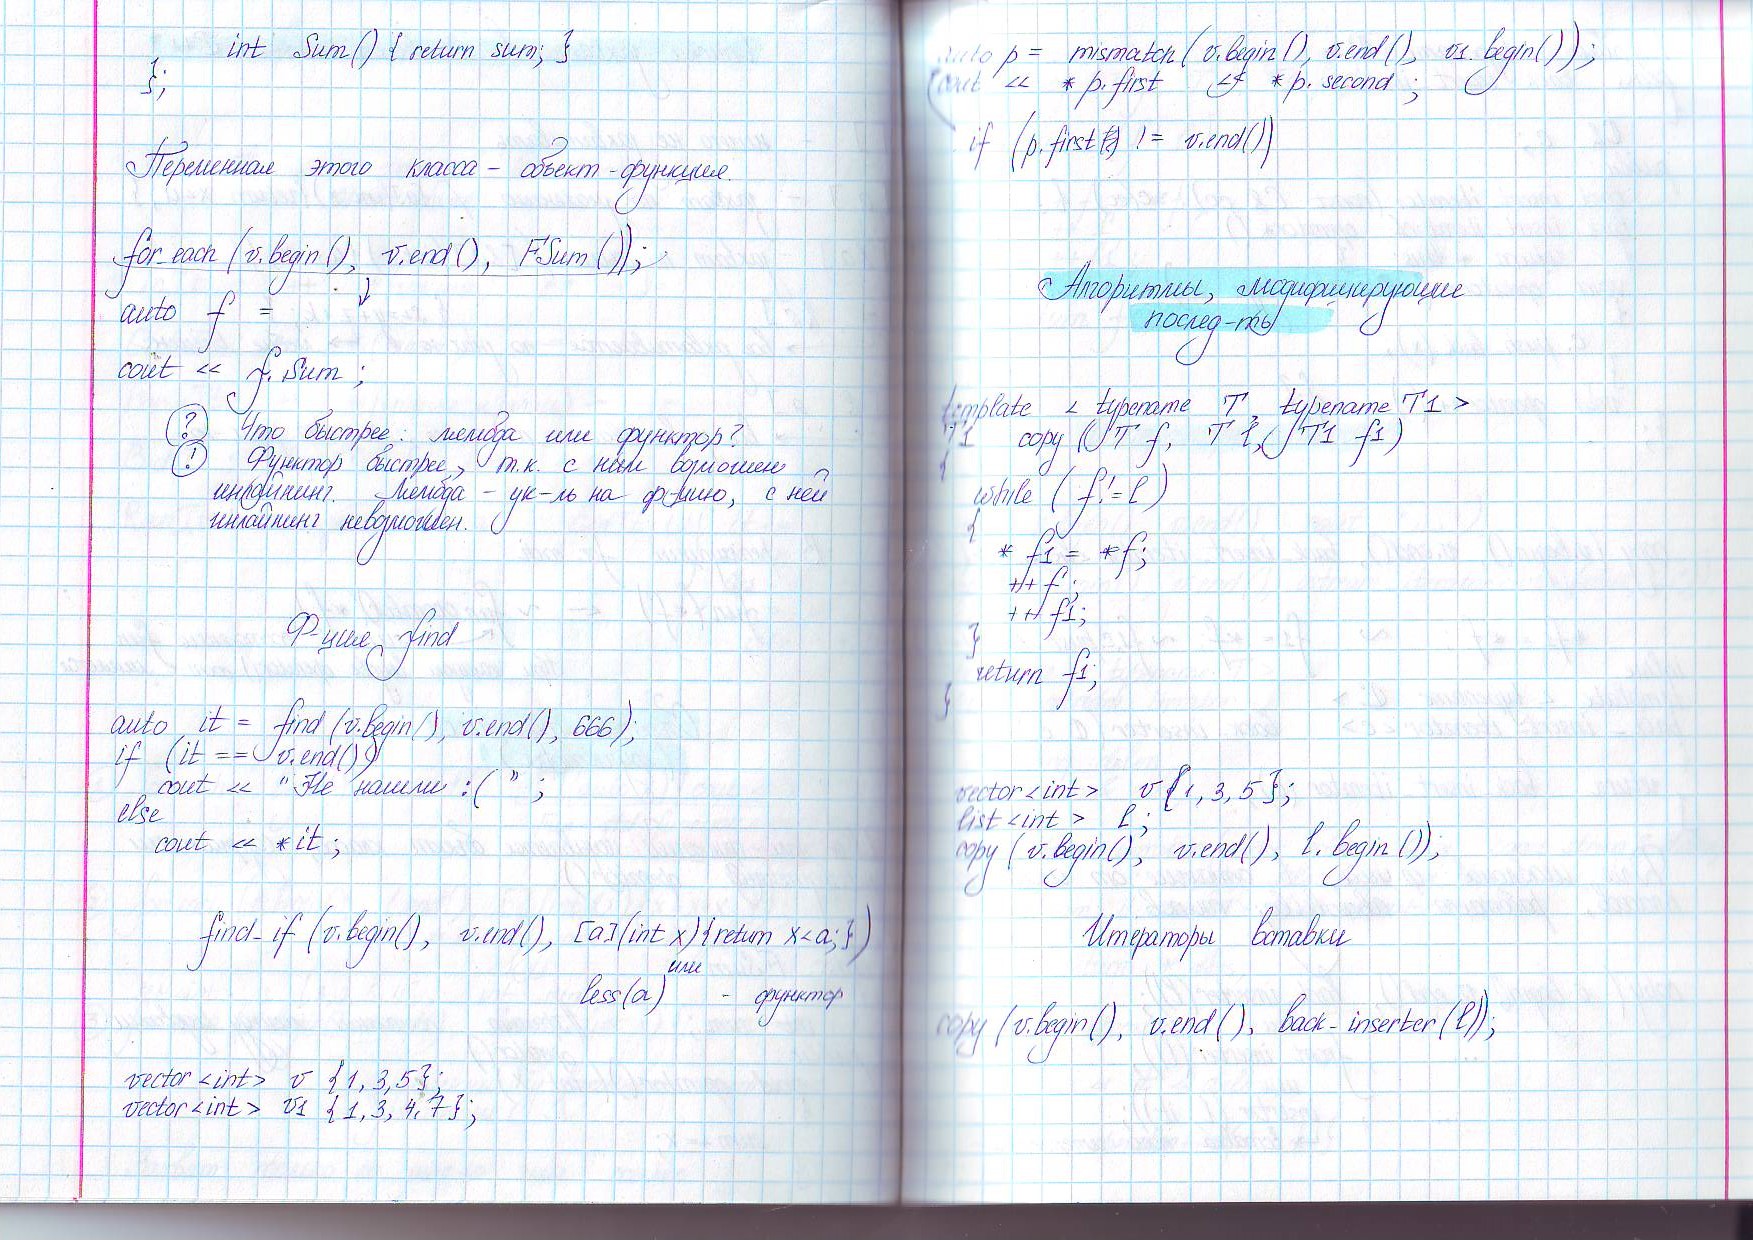 int Sum() { return sum; }
};
Переменная этого класса - объект-функция.
for_each (v.begin(), v.end(), FSum());
auto f =
cout << f.Sum ;
? Что быстрее: лямбда или функтор?
! Функтор быстрее, т.к. с ним возможен
инлайнинг. Лямбда - ук-ль на ф-цию, с ней
инлайнинг невозможен.
Ф-ция find
auto it = find (v.begin(), v.end(), 666);
if (it == v.end())
cout << "Не нашли :( " ;
else
cout << *it ;
find_if (v.begin(), v.end(), [a](int x){return x<a;})
или
less(a) - функтор
vector<int> v {1, 3, 5};
vector<int> v1 {1, 3, 4, 7};
auto p = mismatch (v.begin(), v.end(), v1.begin());
cout << *p.first << *p.second ;
if (p.first != v.end())
Алгоритмы, модифицирующие
послед-ть
template < typename T, typename T1 >
T1 copy ( T f, T l, T1 f1)
{
while ( f != l )
{
* f1 = *f;
++ f;
++ f1;
}
return f1;
}
vector<int> v {1, 3, 5};
list<int> l ;
copy (v.begin(), v.end(), l.begin());
Итераторы вставки
copy (v.begin(), v.end(), back-inserter(l));